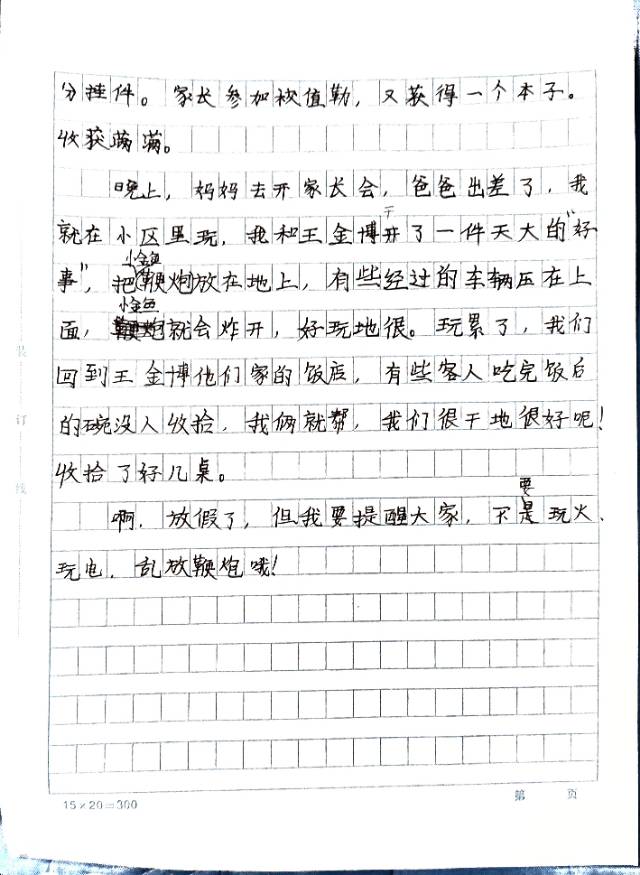 分挂件。家长参加被值勤，又获得一个本子。
收获满满。
晚上，妈妈去开家长会，爸爸出差了，我
就在小区里玩，我和王金博干了一件天大的“好
事”，把小金鱼鞭炮放在地上，有些经过的车辆压在上
面，小金鱼就会炸开，好玩地很。玩累了，我们
回到王金博他们家的饭店，有些客人吃完饭后
的碗没人收拾，我俩就帮，我们很干地很好呢！
收拾了好几桌。
啊，放假了，但我要提醒大家，不要是玩火、
玩电，乱放鞭炮哦！
装
订
线
15×20=300
第 页